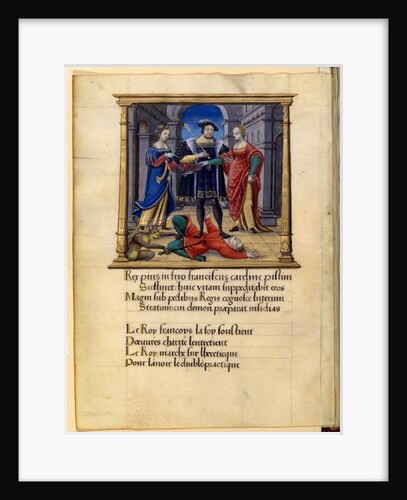 Rex pius in suo franciscus cardine pistim
Sustinet: huic vitam suppeditabit eros
Magus sub pedibus Regis cognosce
Stratum demon præparat insidias
Le Roy francoys la foy soustient
Dœuures charite lentretient
Le Roy marche sur lhereticque
Pour lauoir le diable practique